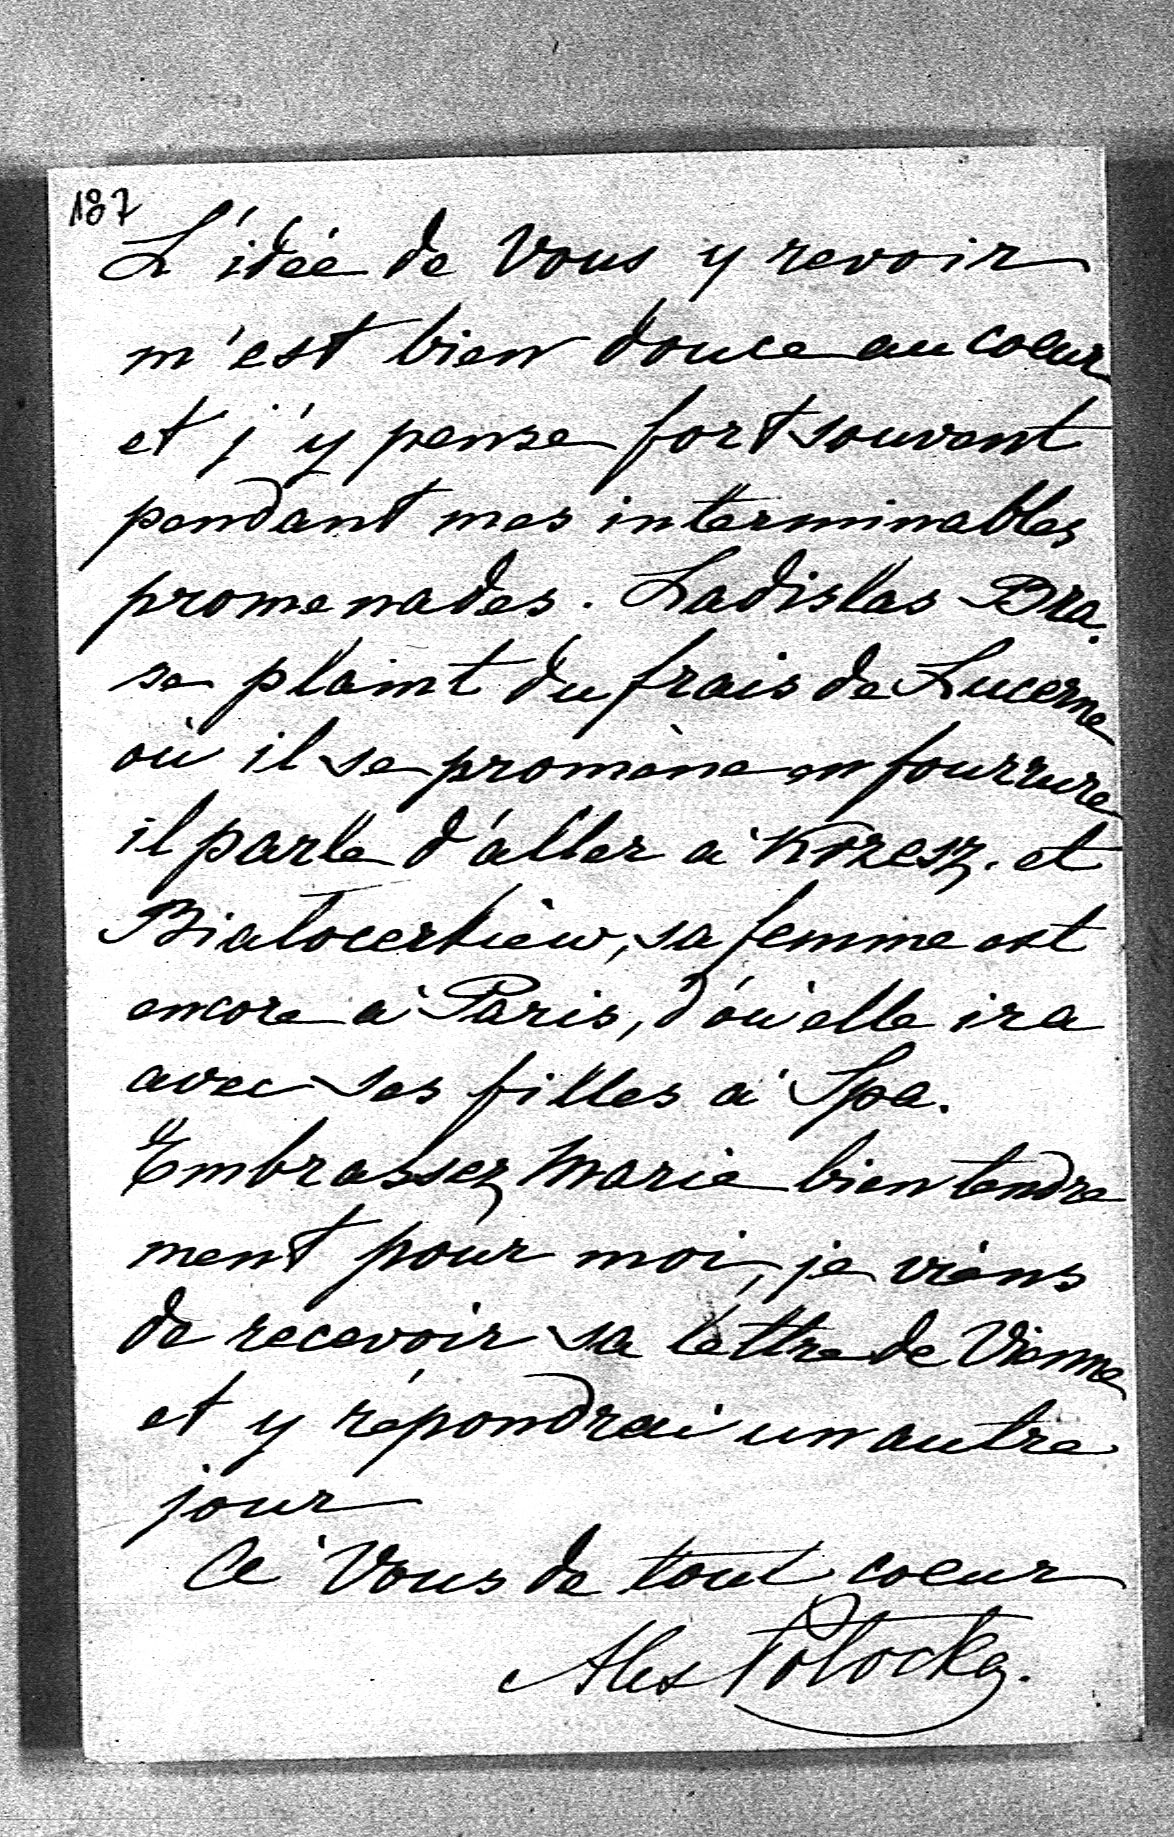 187
L'idée de Vous y revoir
m'est bien douce au coeur
et j'y pense fort souvent
pendant mes interminables
promenades. Ladislas Bra.
se plaint du frais de Lucerne
où il se promène en fourrure
il parle d'aller à Krzesz. et
Bialocerkiew, sa femme est
encore à Paris, d'où elle ira
avec ses filles à Spa.
Embrassez Marie bien tendre
ment pour moi, je viens
de recevoir sa lettre de Vienne
et y répondrai un autre
jour
à Vous de tout coeur
Alex Potocka.